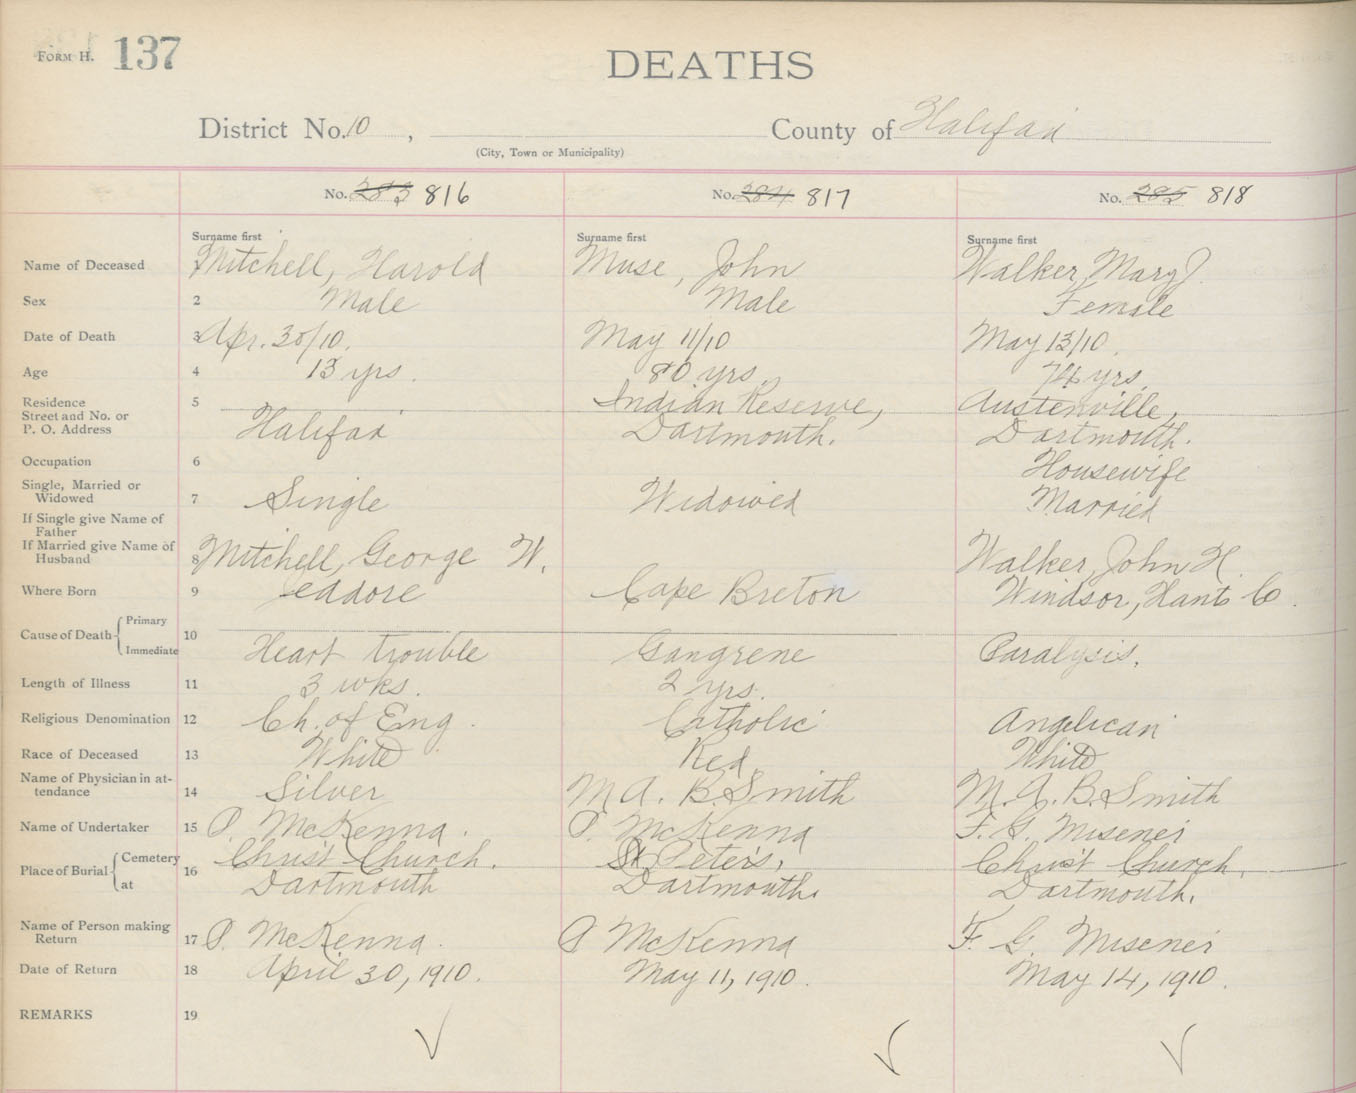 FORM H. 137
DEATHS
District No. 10 , County of Halifax
(City, Town or Municipality)
No. 283 816 No. 284 817 No. 285 818
Surname first Surname first Surname first
Name of Deceased Mitchell, Harold Muse, John Walker, Mary J.
Sex 2 Male Male Female
Date of Death 3 Apr. 30/10. May 11/10 May 13/10.
Age 4 13 yrs. 80 yrs. 74 yrs.
Residence 5 Indian Reserve, Austenville,
Street and No. or
P. O. Address Halifax Dartmouth. Dartmouth.
Occupation 6 Housewife
Single, Married or
Widowed 7 Single Widowed Married
If Single give Name of
Father
If Married give Name of
Husband 8 Mitchell, George W. Walker, John H.
Where Born 9 Jeddore Cape Breton Windsor, Hants Co.
Cause of Death { Primary
10
Immediate Heart trouble Gangrene Paralysis.
Length of Illness 11 3 wks. 2 yrs.
Religious Denomination 12 Ch. of Eng. Catholic Anglican
Race of Deceased 13 White Red White
Name of Physician in at-
tendance 14 Silver M A. B. Smith M. A. B. Smith
Name of Undertaker 15 P. McKenna. P McKenna F. G. Misener
Place of Burial { Cemetery 16 Christ Church. St Peter's, Christ Church,
at Dartmouth Dartmouth. Dartmouth.
Name of Person making
Return 17 P. McKenna. P McKenna F. G. Misener
Date of Return 18 April 30, 1910. May 11, 1910. May 14, 1910.
REMARKS 19